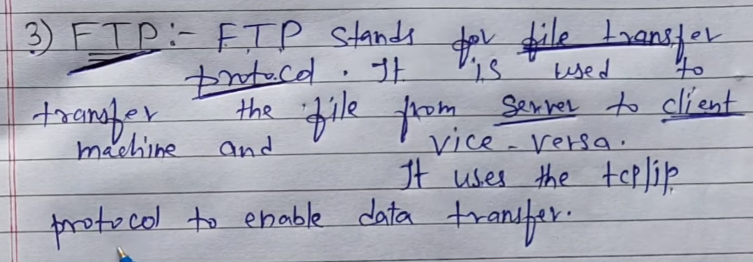 3) FTP:- FTP stands for file transfer
protocol. It is used to
transfer the file from server to client
machine and vice-versa.
It uses the tcp/ip
protocol to enable data transfer.